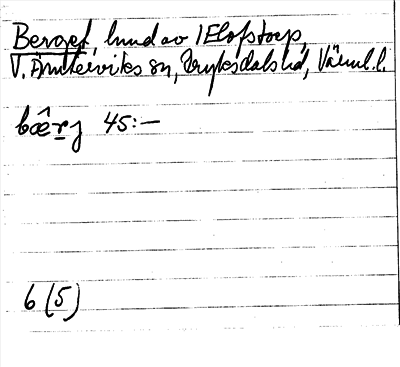 Berget, hmd av 1 Elofstorp,
V. Ämterviks sn, Fryksdals hd, Värml. l.
bæ̂rj 45:—
6 (5)